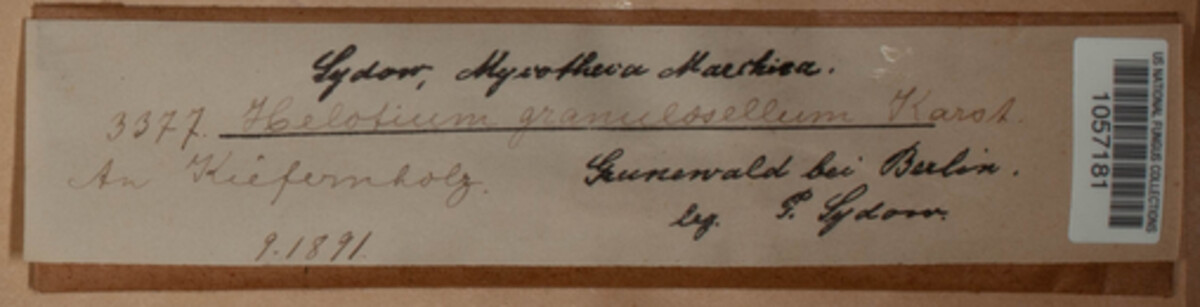 Sydow, Mycotheca Marchica.
3377. Helotium granulosellum Karst.
An Kiefernholz.
Grunewald bei Berlin.
leg. P. Sydow.
9.1891.
US NATIONAL FUNGUS COLLECTIONS
1057181